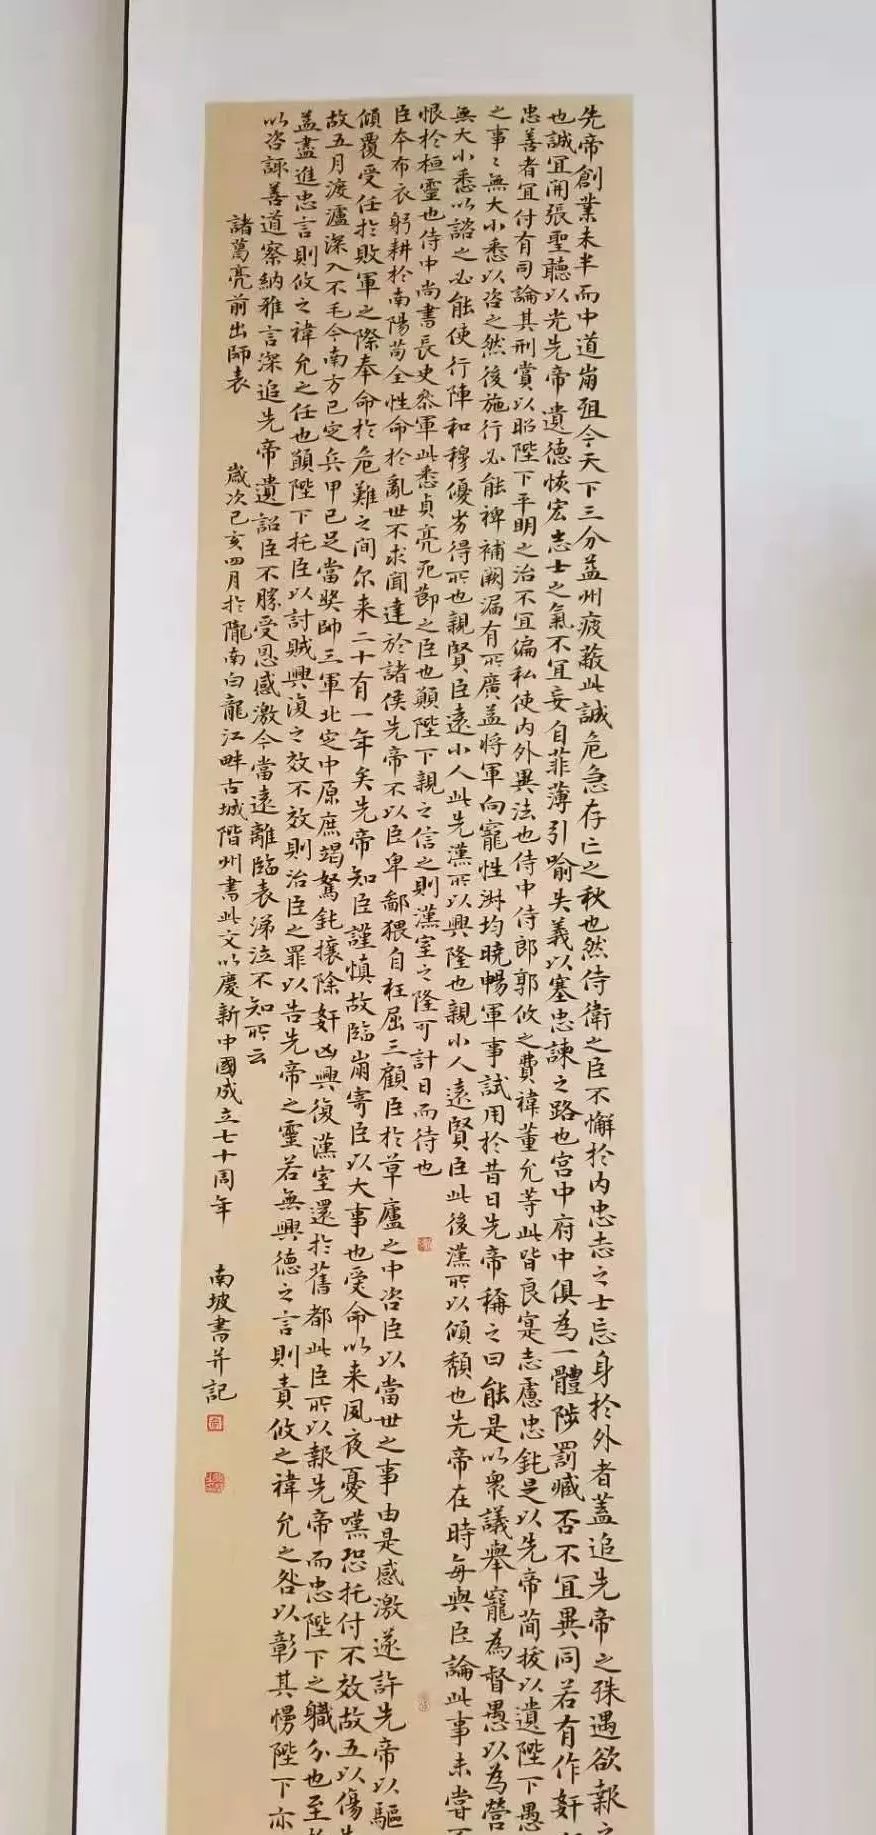 先帝創業未半而中道崩殂今天下三分益州疲蔽此誠危急存亡之秋也然侍衛之臣不懈於内忠志之士忘身於外者蓋追先帝之殊遇欲報之
也誠宜開張聖聽以光先帝遺德恢宏志士之氣不宜妄自菲薄引喻失義以塞忠諫之路也宮中府中俱為一體陟罰臧否不宜異同若有作奸
忠善者宜付有司論其刑賞以昭陛下平明之治不宜偏私使内外異法也侍中侍郎郭攸之費禕董允等此皆良寔志慮忠純是以先帝簡拔以遺陛下愚
之事〻無大小悉以咨之然後施行必能裨補闕漏有所廣益將軍向寵性淑均曉暢軍事試用於昔日先帝稱之曰能是以衆議舉寵為督愚以為營
無大小悉以諮之必能使行陣和穆優劣得所也親賢臣遠小人此先漢所以興隆也親小人遠賢臣此後漢所以傾頹也先帝在時每與臣論此事未嘗不
恨於桓靈也侍中尚書長史參軍此悉貞亮死節之臣也願陛下親之信之則漢室之隆可計日而待也
臣本布衣躬耕於南陽苟全性命於亂世不求聞達於諸侯先帝不以臣卑鄙猥自枉屈三顧臣於草廬之中咨臣以當世之事由是感激遂許先帝以驅
傾覆受任於敗軍之際奉命於危難之間尔来二十有一年矣先帝知臣謹慎故臨崩寄臣以大事也受命以来夙夜憂嘆恐托付不效故五以傷
故五月渡瀘深入不毛今南方已定兵甲已足當奬帥三軍北定中原庶竭駑鈍攘除奸凶興復漢室還於舊都此臣所以報先帝而忠陛下之職分也至
益盡進忠言則攸之禕允之任也願陛下托臣以討賊興復之效不效則治臣之罪以告先帝之靈若無興德之言則責攸之禕允之咎以彰其慢陛下亦
以咨諏善道察納雅言深追先帝遺詔臣不勝受恩感激今當遠離臨表涕泣不知所云
諸葛亮前出師表 歲次己亥四月於隴南白龍江畔古城階州書此文以慶新中國成立七十周年 南坡書并記